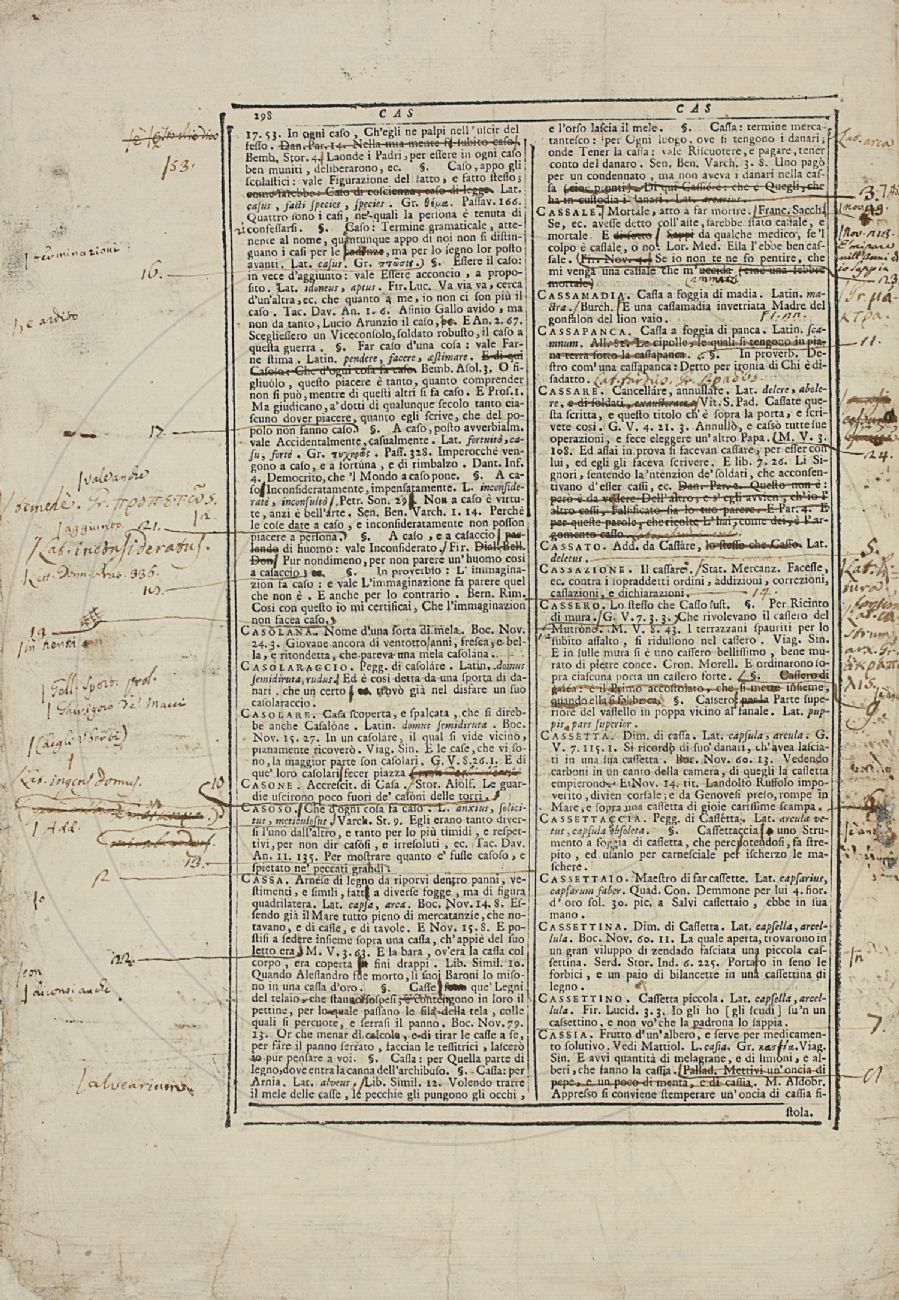 298 CAS
17. 53. In ogni caso, Ch'egli ne palpi nell'uscir del
sesso. Dan. Par. 14. Nella mia mente fè subito caso,
Bemb. Stor. 4. Laonde i Padri, per essere in ogni caso
ben muniti, deliberarono, ec. §. Caso, appo gli
scolastici: vale Figurazione del fatto, e fatto stesso;
come sarebbe: Caso di coscienza, caso di legge. Lat.
casus, facti species, species. Gr. θέμα. Passav. 166.
Quattro sono i casi, ne' quali la persona è tenuta di
confessarsi. §. Caso: Termine gramaticale, atte-
nente al nome, quantunque appo di noi non si distin-
guano i casi per le cadenze, ma per lo segno lor posto
avanti. Lat. casus. Gr. πτῶσις. §. Essere il caso:
in vece d'aggiunto: vale Essere acconcio, a propo-
sito. Lat. idoneus, aptus. Fir. Luc. Va via va, cerca
d'un'altra, ec. che quanto a me, io non ci son più il
caso. Tac. Dav. An. 1. 6. Asinio Gallo avido, ma
non da tanto, Lucio Arunzio il caso, ec. E An. 2. 67.
Scegliessero un Viceconsolo, soldato robusto, il caso a
questa guerra. §. Far caso d'una cosa: vale Far-
ne stima. Latin. pendere, facere, æstimare. E di qui
Casoso: Che d'ogni cosa fa caso. Bemb. Asol. 3. O fi-
gliuolo, questo piacere è tanto, quanto comprender
non si può, mentre di questi altri si fa caso. E Pros. 1.
Ma giudicano, a' dotti di qualunque secolo tanto cia-
scuno dover piacere, quanto egli scrive, che del po-
polo non fanno caso. §. A caso, posto avverbialm.
vale Accidentalmente, casualmente. Lat. fortuitò, ca-
su, fortè. Gr. τυχηρῶς. Pass. 328. Imperocchè ven-
gono a caso, e a fortuna, e di rimbalzo. Dant. Inf.
4. Democrito, che 'l Mondo a caso pone. §. A ca-
so Inconsideratamente, impensatamente. L. inconside-
ratè, inconsultò. Petr. Son. 29. Non a caso è virtu-
te, anzi è bell'arte. Sen. Ben. Varch. 1. 14. Perchè
le cose date a caso, e inconsideratamente non posson
piacere a persona. §. A caso, e a casaccio par-
lando di huomo: vale Inconsiderato. Fir. Dial. Bell.
Don. Pur nondimeno, per non parere un'huomo così
a casaccio, ec. §. In proverbio: L'immagina-
zion fa caso: e vale L'immaginazione fa parere quel
che non è. E anche per lo contrario. Bern. Rim.
Così con questo io mi certificai, Che l'immaginazion
non facea caso.
CASOLANA. Nome d'una sorta di mela. Boc. Nov.
24. 3. Giovane ancora di ventotto anni, fresca, e bel-
la, e ritondetta, che pareva una mela casolana.
CASOLARACCIO. Pegg. di casoláre. Latin. domus
semidiruta, rudus. Ed è così detta da una sporta di da-
nari, che un certo ec. trovò già nel disfare un suo
casolaraccio.
CASOLARE. Casa scoperta, e spalcata, che si direb-
be anche Casalòne. Latin. domus semidiruta. Boc.
Nov. 15. 27. In un casolare, il qual si vide vicino,
pianamente ricoverò. Viag. Sin. E le case, che vi so-
no, la maggior parte son casolari. G. V. 8. 26. 1. E di
que' loro casolari fecer piazza
CASONE. Accrescit. di Casa. Stor. Aiolf. Le guar-
die uscirono poco fuori de' casóni delle torri.
CASOSO. Che d'ogni cosa fa caso. L. anxius, solici-
tus, meticulosus. Varch. St. 9. Egli erano tanto diver-
si l'uno dall'altro, e tanto per lo più timidi, e rispet-
tivi, per non dir casósi, e irresoluti, ec. Tac. Dav.
An. 11. 135. Per mostrare quanto e' fusse casoso, e
spietato ne' peccati grandi.
CASSA. Arnese di legno da riporvi dentro panni, ve-
stimenti, e simili, fatto a diverse fogge, ma di figura
quadrilatera. Lat. capsa, arca. Boc. Nov. 14. 8. Es-
sendo già il Mare tutto pieno di mercatanzie, che no-
tavano, e di casse, e di tavole. E Nov. 15. 8. E po-
stisi a sedere insieme sopra una cassa, ch'appiè del suo
letto era. M. V. 3. 63. E la bara, ov'era la cassa col
corpo, era coperta di fini drappi. Lib. Simil. 10.
Quando Alessandro fue morto, li suoi Baroni lo miso-
no in una cassa d'oro. §. Casse sono que' Legni
del telaio, che stanno sospesi, e contengono in loro il
pettine, per lo quale passano le fila della tela, colle
quali si percuote, e serrasi il panno. Boc. Nov. 79.
13. Or che menar di calcole, e di tirar le casse a se,
per fare il panno serrato, faccian le tessitrici, lascerò
io pur pensare a voi. §. Cassa: per Quella parte di
legno, dove entra la canna dell'archibuso. §. Cassa: per
Arnia. Lat. alveus. Lib. Simil. 12. Volendo trarre
il mele delle casse, le pecchie gli pungono gli occhi,
CAS
e l'orso lascia il mele. §. Cassa: termine merca-
tantesco: per Ogni luogo, ove si tengono i danari;
onde Tener la cassa: vale Riscuotere, e pagare, tener
conto del danaro. Sen. Ben. Varch. 3. 8. Uno pagò
per un condennato, ma non aveva i danari nella cas-
sa (cioè pronti). Di qui Cassiére: che è Quegli, che
ha in custodia i danari. Lat. arcarius.
CASSALE. Mortale, atto a far morire. Franc. Sacch.
Se, ec. avesse detto coll'aste, sarebbe stato cassale, e
mortale. E di sotto. Sappi da qualche medico, se 'l
colpo è cassale, o no. Lor. Med. Ella l'ebbe ben cas-
sale. Fir. Nov. 4. Se io non te ne fo pentire, che
mi venga una cassale che m'uccida (cioè una febbre
mortale)
CASSAMADIA. Cassa a foggia di madia. Latin. ma-
ctra. Burch. E una cassamadia invetriata Madre del
gonfalon del lion vaio.
CASSAPANCA. Cassa a foggia di panca. Latin. sca-
mnum. All. 82. Le cipolle, le quali si tengono in pia-
na terra sotto la cassapanca. §. In proverb. De-
stro com'una cassapanca: Detto per ironia di Chi è di-
sadatto. Lat. tardus. Gr. βραδύς.
CASSARE. Cancelláre, annullare. Lat. delere, abole-
re, e di soldati, exauctorare. Vit. S. Pad. Cassate que-
sta scritta, e questo titolo ch'è sopra la porta, e scri-
vete così. G. V. 4. 21. 3. Annullò, e cassò tutte sue
operazioni, e fece eleggere un'altro Papa. M. V. 3.
108. Ed assai in prova si facevan cassare, per esser con
lui, ed egli gli faceva scrivere. E lib. 7. 26. Li Si-
gnori, sentendo la 'ntenzion de' soldati, che acconsen-
tivano d'esser cassi, ec. Dan. Par. 2. Questo non è:
però è da vedere Dell'altro; e s'egli avvien, ch'io l'
altro cassi, Falsificato fia lo tuo parere. E Par. 4. E
per queste parole, che ricolte L'hai, come dei, è l'ar-
gomento casso.
CASSATO. Add. da Cassáre, lo stesso che Casso. Lat.
deletus.
CASSAZIONE. Il cassare. Stat. Mercanz. Facesse,
ec. contra i sopraddetti ordini, addizioni, correzioni,
cassazioni, e dichiarazioni.
CASSERO. Lo stesso che Casso sust. §. Per Ricinto
di mura. G. V. 7. 3. 3. Che rivolevano il cassero del
Mutrone. M. V. 8. 43. I terrazzani spauriti per lo
subito assalto, si ridusson nel cassero. Viag. Sin.
E in sulle mura si è uno cassero bellissimo, bene mu-
rato di pietre conce. Cron. Morell. E ordinarono so-
pra ciascuna porta un cassero forte. §. Cassero di
galéa: è il Primo accostolato, che si mette insieme,
quando ella si fabbrica. §. Cassero: per la Parte supe-
riore del vassello in poppa vicino al fanale. Lat. pup-
pis, pars superior.
CASSETTA. Dim. di cassa. Lat. capsula, arcula: G.
V. 7. 115. 1. Si ricordò di suo' danari, ch'avea lascia-
ti in una sua cassetta. Boc. Nov. 60. 13. Vedendo
carboni in un canto della camera, di quegli la cassetta
empierono. E Nov. 14. tit. Landolfo Russolo impo-
verito, divien corsale; e da Genovesi preso, rompe in
Mare, e sopra una cassetta di gioie carissime scampa.
CASSETTACCIA. Pegg. di Cassétta. Lat. arcula ve-
tus, capsula obsoleta. §. Cassettaccia è uno Stru-
mento a foggia di cassetta, che percotendosi, fa stre-
pito, ed usanlo per carnesciale per ischerzo le ma-
schere.
CASSETTAIO. Maestro di far cassette. Lat. capsarius,
capsarum faber. Quad. Con. Demmone per lui 4. fior.
d'oro sol. 30. pic. a Salvi cassettaio, ebbe in sua
mano.
CASSETTINA. Dim. di Cassetta. Lat. capsella, arcel-
lula. Boc. Nov. 60. 11. La quale aperta, trovarono in
un gran viluppo di zendado fasciata una piccola cas-
settina. Serd. Stor. Ind. 6. 225. Portaro in seno le
forbici, e un paio di bilancette in una cassettina di
legno.
CASSETTINO. Cassetta piccola. Lat. capsella, arcel-
lula. Fir. Lucid. 3. 3. Io gli ho [gli scudi] su'n un
cassettino, e non vo' che la padrona lo sappia.
CASSIA. Frutto d'un'albero, e serve per medicamen-
to solutivo. Vedi Mattiol. L. casia. Gr. κασσία. Viag.
Sin. E avvi quantità di melagrane, e di limoni, e al-
beri, che fanno la cassia. Pallad. Mettivi un'oncia di
pepe, e un poco di menta, e di cassia. M. Aldobr.
Appresso si conviene stemperare un'oncia di cassia fi-
stola.
153.
terminazioni
16.
, e ardito
17.
vale anche
temerè. Gr. προπετῶς.
aggiunto 21.
Lat. inconsideratus.
19.
Lat. ingens domus.
10
Add.
13.
22.
alvearium
Lat. arca
3.
123
11.
24.
5.
7.